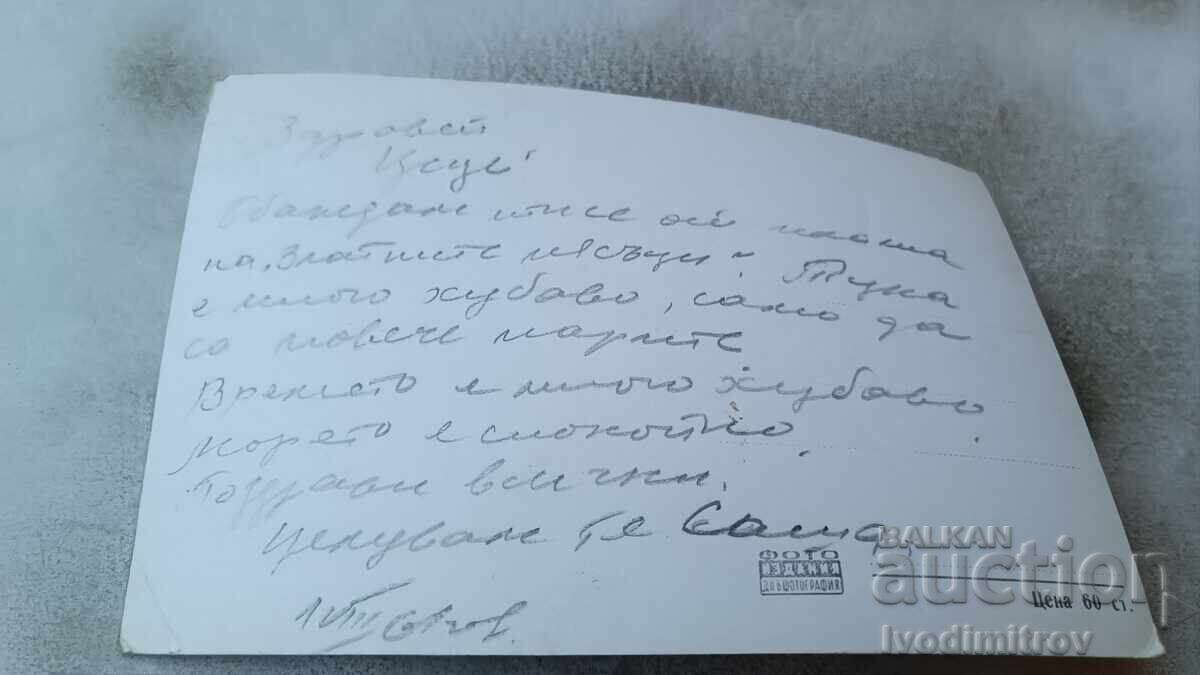 Здравей
Цеце!
Обаждам ти се от плажа
на "Златните пясъци". Тука
е много хубаво, само да
са повече парите
Времето е много хубаво
морето е спокойно.
Поздрави всички.
Целувам те Саша.
1 VIII 61 г.
ФОТО
ИЗДАНИЕ
ДП БЪЛГ. ФОТОГРАФИЯ
Цена 60 ст.
BALKAN
auction
Ivodimitrov